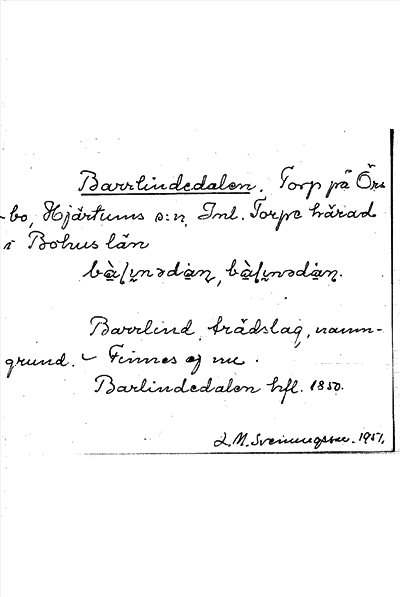 Barrlindedalen. Torp på Örs-
bo, Hjärtums s:n, Inl. Torpe härad
i Bohus län
Barrlind, trädslag, namn-
grund. – Finnes ej nu.
Barlindedalen hfl. 1850.
L.M. Svenungsson. 1951.